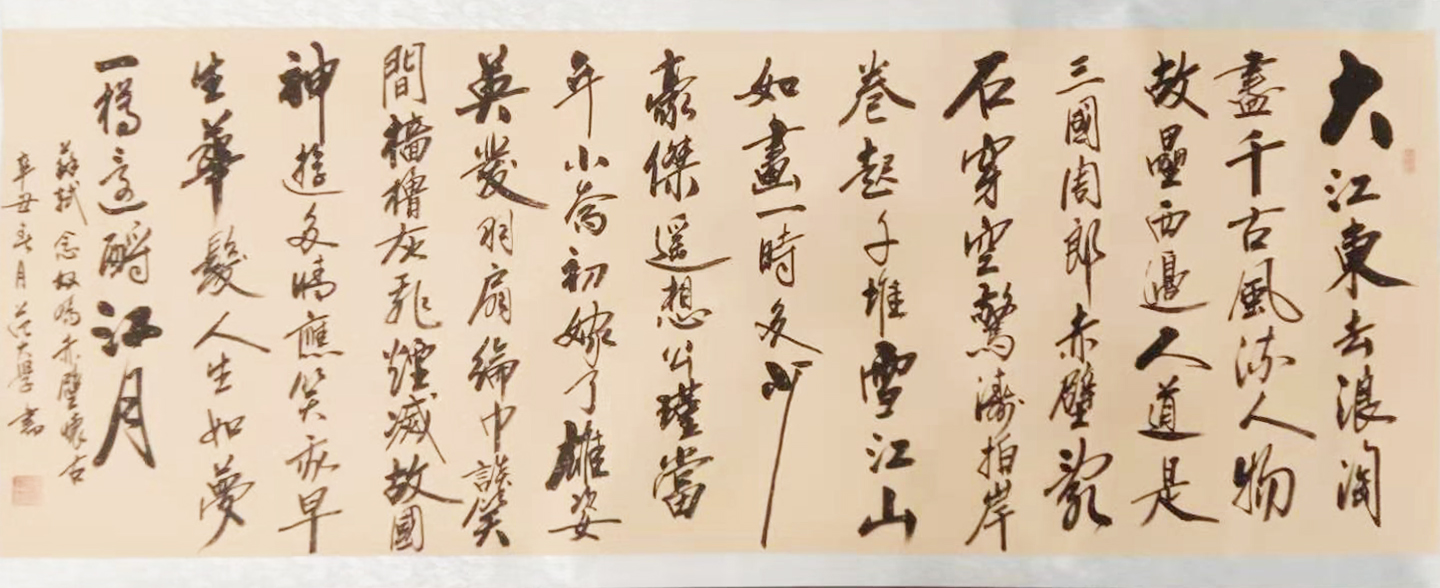 大江東去浪淘
盡千古風流人物
故壘西邊人道是
三國周郎赤壁亂
石穿空驚濤拍岸
卷起千堆雪江山
如畫一時多少
豪傑遥想公瑾當
年小喬初嫁了雄姿
英發羽扇綸巾談笑
間檣櫓灰飛煙滅故國
神遊多情應笑我早
生華髮人生如夢
一樽還酹江月
蘇軾念奴嬌赤壁懷古
辛丑春月范大學書